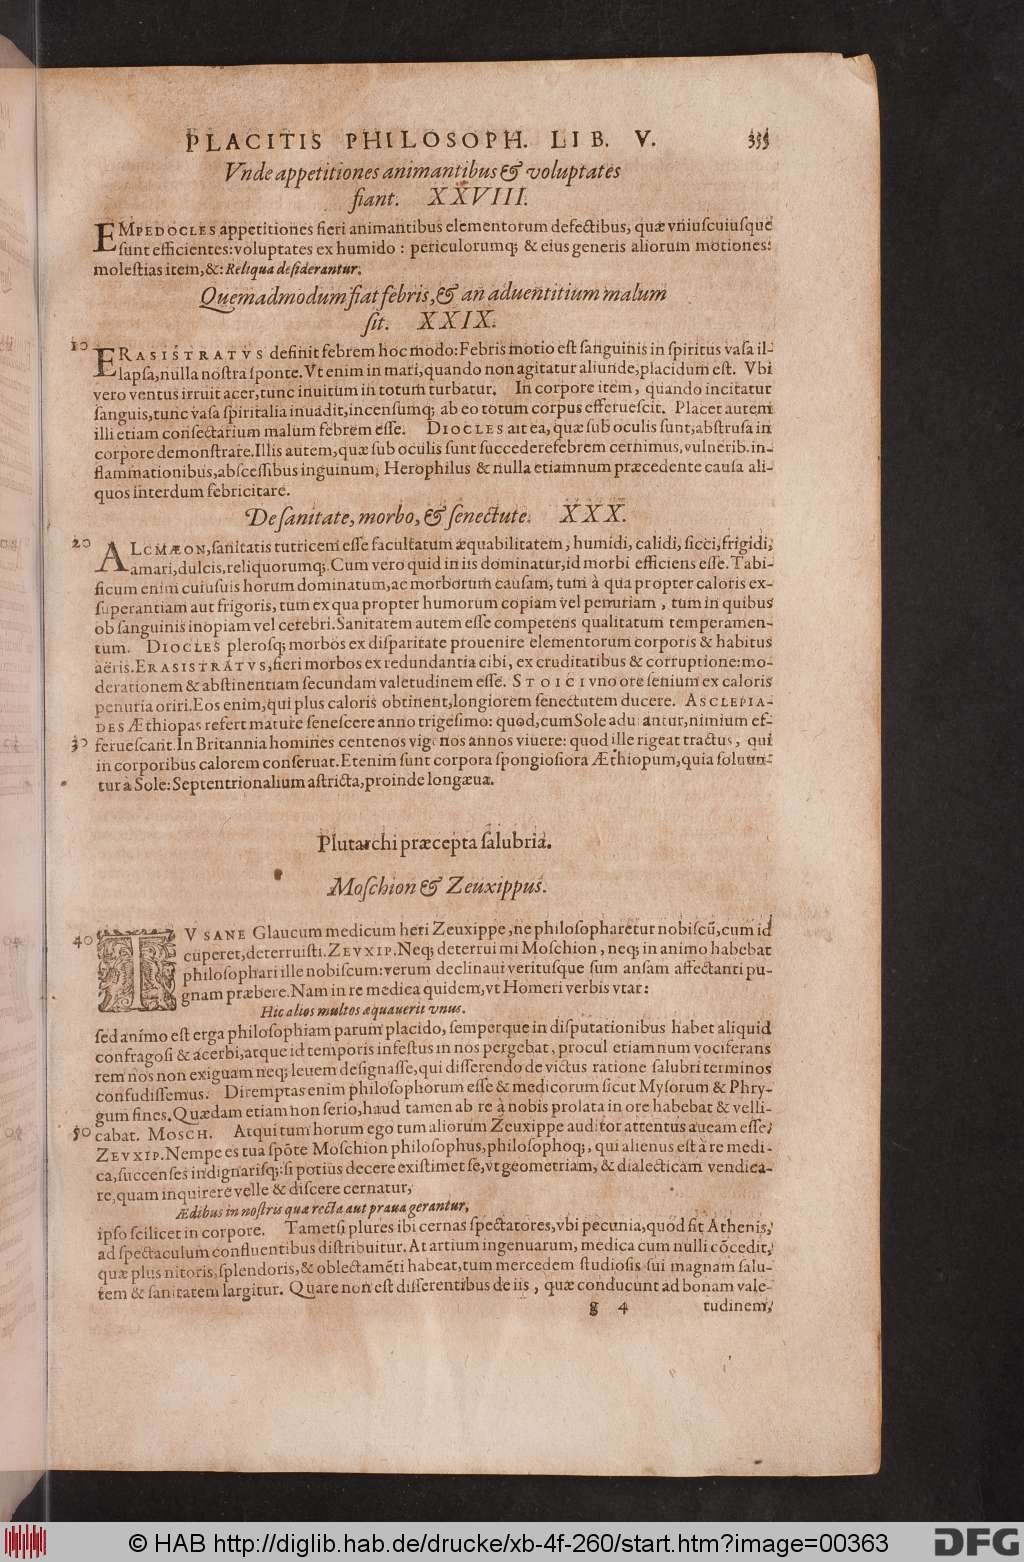 PLACITIS PHILOSOPH. LIB. V. 355
Vnde appetitiones animantibus & voluptates
fiant. XXVIII.
EMPEDOCLES appetitiones fieri animantibus elementorum defectibus, quæ vniuscuiusque
sunt efficientes: voluptates ex humido: periculorumq; & eius generis aliorum motiones:
molestias item, &: Reliqua desiderantur.
Quemadmodum fiat febris, & an aduentitium malum
sit. XXIX.
10 ERASISTRATVS definit febrem hoc modo: Febris motio est sanguinis in spiritus vasa il-
lapsa, nulla nostra sponte. Vt enim in mari, quando non agitatur aliunde, placidum est. Vbi
vero ventus irruit acer, tunc inuitum in totum turbatur. In corpore item, quando incitatur
sanguis, tunc vasa spiritalia inuadit, incensumq; ab eo totum corpus efferuescit. Placet autem
illi etiam consectarium malum febrem esse. DIOCLES ait ea, quæ sub oculis sunt, abstrusa in
corpore demonstrare. Illis autem, quæ sub oculis sunt succedere febrem cernimus, vulnerib. in-
flammationibus, abscessibus inguinum, Herophilus & nulla etiamnum præcedente causa ali-
quos interdum febricitare.
De sanitate, morbo, & senectute. XXX.
20 ALCMÆON, sanitatis tutricem esse facultatum æquabilitatem, humidi, calidi, sicci, frigidi,
amari, dulcis, reliquorumq;. Cum vero quid in iis dominatur, id morbi efficiens esse. Tabi-
ficum enim cuiusuis horum dominatum, ac morborum causam, tum à qua propter caloris ex-
superantiam aut frigoris, tum ex qua propter humorum copiam vel penuriam, tum in quibus
ob sanguinis inopiam vel cerebri. Sanitatem autem esse competens qualitatum temperamen-
tum. DIOCLES plerosq; morbos ex disparitate prouenire elementorum corporis & habitus
aëris. ERASISTRATVS, fieri morbos ex redundantia cibi, ex cruditatibus & corruptione: mo-
derationem & abstinentiam secundam valetudinem esse. STOICI vno ore senium ex caloris
penuria oriri. Eos enim, qui plus caloris obtinent, longiorem senectutem ducere. ASCLEPIA-
DES Æthiopas refert mature senescere anno trigesimo: quod, cum Sole adurantur, nimium ef-
30 feruescant. In Britannia homines centenos vigenos annos viuere: quod ille rigeat tractus, qui
in corporibus calorem conseruat. Etenim sunt corpora spongiosiora Æthiopum, quia soluun-
tur à Sole: Septentrionalium astricta, proinde longæua.
Plutarchi præcepta salubria.
Moschion & Zeuxippus.
40 TV SANE Glaucum medicum heri Zeuxippe, ne philosopharetur nobiscũ, cum id
cuperet, deterruisti. ZEVXIP. Neq; deterrui mi Moschion, neq; in animo habebat
philosophari ille nobiscum: verum declinaui veritusque sum ansam affectanti pu-
gnam præbere. Nam in re medica quidem, vt Homeri verbis vtar:
Hic alios multos æquauerit vnus.
sed animo est erga philosophiam parum placido, semperque in disputationibus habet aliquid
confragosi & acerbi, atque id temporis infestus in nos pergebat, procul etiamnum vociferans
rem nos non exiguam neq; leuem designasse, qui disserendo de victus ratione salubri terminos
confudissemus. Diremptas enim philosophorum esse & medicorum sicut Mysorum & Phry-
gum fines. Quædam etiam non serio, haud tamen ab re à nobis prolata in ore habebat & velli-
50 cabat. MOSCH. Atqui tum horum ego tum aliorum Zeuxippe auditor attentus aueam esse.
ZEVXIP. Nempe es tua spõte Moschion philosophus, philosophoq;, qui alienus est à re medi-
ca, succenses indignarisq;: si potius decere existimet se, vt geometriam, & dialecticam vendica-
re, quam inquirere velle & discere cernatur,
Ædibus in nostris quæ recta aut praua gerantur,
ipso scilicet in corpore. Tametsi plures ibi cernas spectatores, vbi pecunia, quod fit Athenis,
ad spectaculum confluentibus distribuitur. At artium ingenuarum, medica cum nulli cõcedit,
quæ plus nitoris, splendoris, & oblectamẽti habeat, tum mercedem studiosis sui magnam salu-
tem & sanitatem largitur. Quare non est disserentibus de iis, quæ conducunt ad bonam vale-
g 4 tudinem,
© HAB http://diglib.hab.de/drucke/xb-4f-260/start.htm?image=00363
DFG